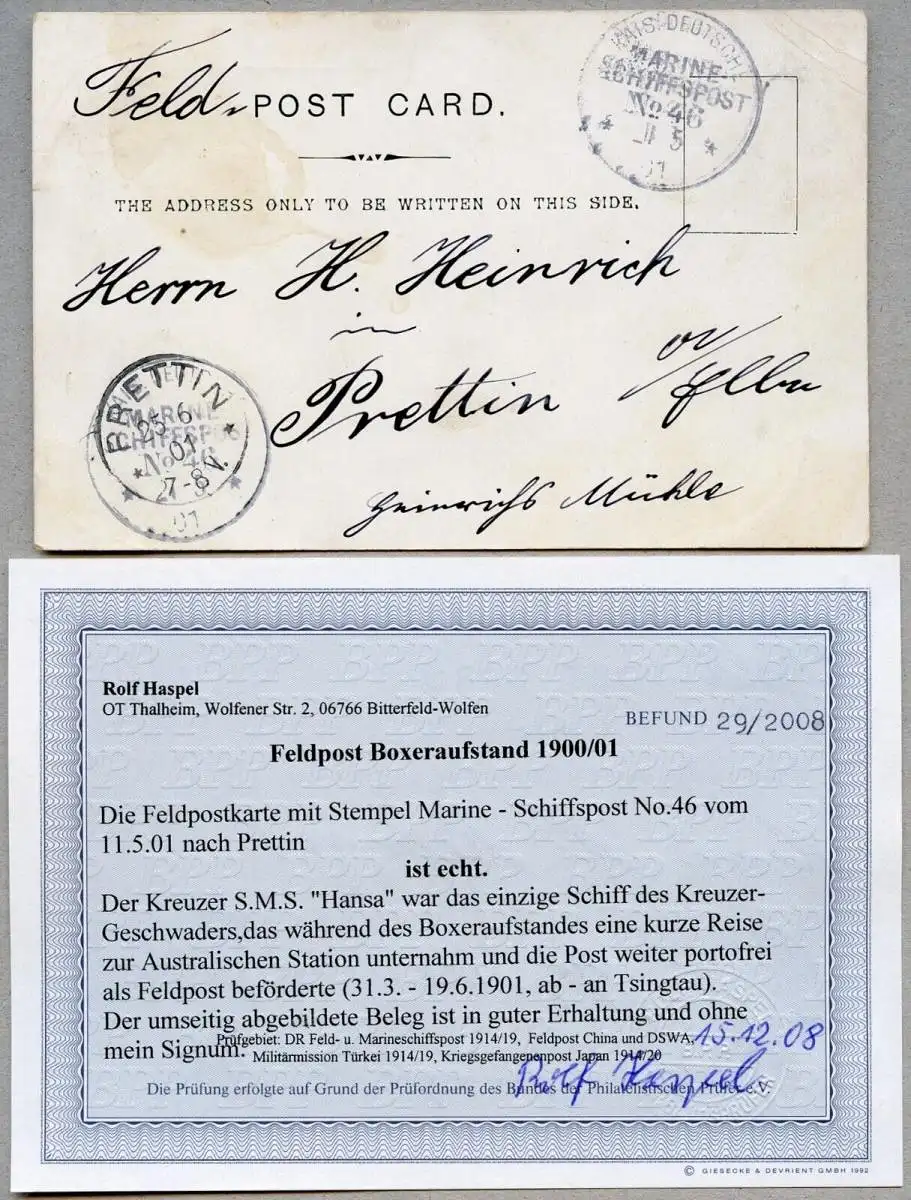 KAIS. DEUTSCHE
MARINE-
SCHIFFSPOST
No 46
11 5
01
Feld-POST CARD.
THE ADDRESS ONLY TO BE WRITTEN ON THIS SIDE.
Herrn H. Heinrich
in
Prettin a/Elbe
Heinrichs Mühle
PRETTIN
25 6
01
7-8V.
MARINE
SCHIFFSPOS
No 46
01
BPP BPP BPP BPP BPP
Rolf Haspel
OT Thalheim, Wolfener Str. 2, 06766 Bitterfeld-Wolfen
BEFUND 29/2008
Feldpost Boxeraufstand 1900/01
Die Feldpostkarte mit Stempel Marine - Schiffspost No.46 vom
11.5.01 nach Prettin
ist echt.
Der Kreuzer S.M.S. "Hansa" war das einzige Schiff des Kreuzer-
Geschwaders,das während des Boxeraufstandes eine kurze Reise
zur Australischen Station unternahm und die Post weiter portofrei
als Feldpost beförderte (31.3. - 19.6.1901, ab - an Tsingtau).
Der umseitig abgebildete Beleg ist in guter Erhaltung und ohne
mein Signum.
Prüfgebiet: DR Feld- u. Marineschiffspost 1914/19, Feldpost China und DSWA,
15.12.08
Militärmission Türkei 1914/19, Kriegsgefangenenpost Japan 1914/20
Rolf Haspel
Die Prüfung erfolgte auf Grund der Prüfordnung des Bundes der Philatelistischen Prüfer e.V.
© GIESECKE & DEVRIENT GMBH 1992